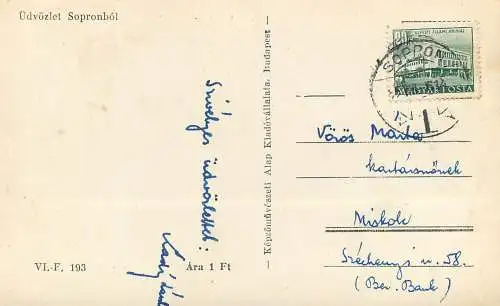 Üdvözlet Sopronból
SOPRON
MAGYAR POSTA
1
Szívélyes üdvözlettel:
Képzőművészeti Alap Kiadóvállalata, Budapest
Vörös Márta
kartársnőnek
Miskolc
Széchenyi u. 58.
(Ber. Bank)
VI.-F. 193
Ára 1 Ft